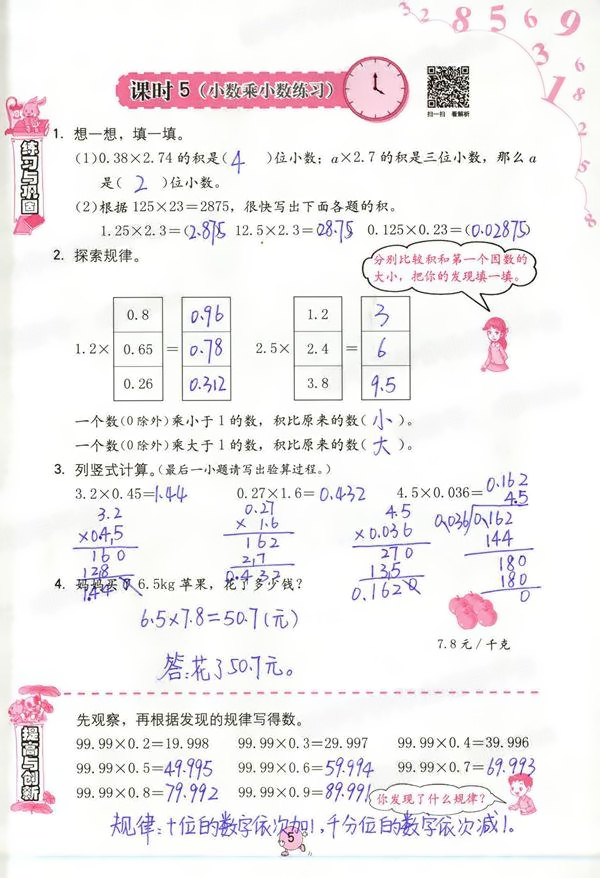 3 2 8 5 6 9
3 6
1 8
2
5
8
课时 5（小数乘小数练习）
扫一扫 看解析
练习与巩固
1. 想一想，填一填。
(1)0.38×2.74 的积是( 4 )位小数；a×2.7 的积是三位小数，那么 a
是( 2 )位小数。
(2)根据 125×23=2875，很快写出下面各题的积。
1.25×2.3=(2.875) 12.5×2.3=(28.75) 0.125×0.23=(0.02875)
2. 探索规律。
分别比较积和第一个因数的
大小，把你的发现填一填。
0.8 0.96 1.2 3
1.2× 0.65 = 0.78 2.5× 2.4 = 6
0.26 0.312 3.8 9.5
一个数(0 除外)乘小于 1 的数，积比原来的数( 小 )。
一个数(0 除外)乘大于 1 的数，积比原来的数( 大 )。
3. 列竖式计算。(最后一小题请写出验算过程。)
3.2×0.45=1.44 0.27×1.6=0.432 4.5×0.036=0.162
3.2 0.27 4.5 4.5
×0.45 × 1.6 ×0.036 0.036 0.162
160 162 270 144
128 27 135 180
1.440 0.432 0.1620 180
0
4. 妈妈买了 6.5kg 苹果，花了多少钱？
6.5×7.8=50.7(元)
7.8 元/千克
答：花了50.7元。
提高与创新
先观察，再根据发现的规律写得数。
99.99×0.2=19.998 99.99×0.3=29.997 99.99×0.4=39.996
99.99×0.5=49.995 99.99×0.6=59.994 99.99×0.7=69.993
99.99×0.8=79.992 99.99×0.9=89.991
你发现了什么规律？
规律：十位的数字依次加1，千分位的数字依次减1。
5